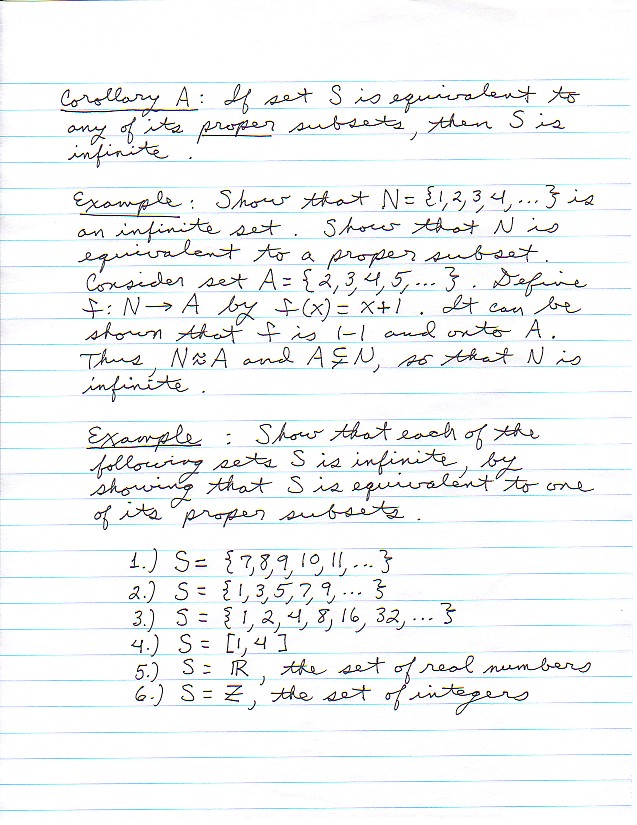 Corollary A: If set S is equivalent to
any of its proper subsets, then S is
infinite.
Example: Show that N = {1,2,3,4,...} is
an infinite set. Show that N is
equivalent to a proper subset.
Consider set A = {2,3,4,5,...}. Define
f: N → A by f(x) = x+1. It can be
shown that f is 1-1 and onto A.
Thus, N ≈ A and A ⊊ N, so that N is
infinite.
Example: Show that each of the
following sets S is infinite, by
showing that S is equivalent to one
of its proper subsets.
1.) S = {7,8,9,10,11,...}
2.) S = {1,3,5,7,9,...}
3.) S = {1,2,4,8,16,32,...}
4.) S = [1,4]
5.) S = ℝ, the set of real numbers
6.) S = Z, the set of integers